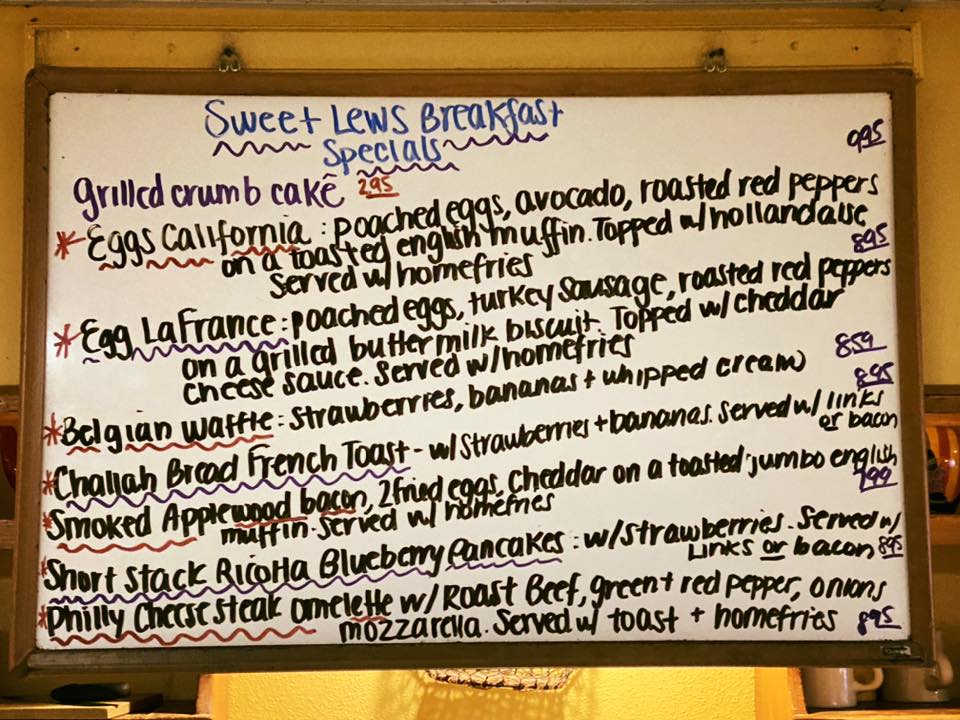 Sweet Lews Breakfast
Specials
grilled crumb cake 2.95
9.95
* Eggs California : poached eggs, avocado, roasted red peppers
on a toasted english muffin. Topped w/ hollandaise
Served w/ homefries
8.95
* Egg LaFrance : poached eggs, turkey sausage, roasted red peppers
on a grilled buttermilk biscuit. Topped w/ cheddar
cheese sauce. Served w/ homefries
8.59
* Belgian Waffle : Strawberries, bananas + whipped cream
8.95
* Challah Bread French Toast - w/ strawberries + bananas. Served w/ links
or bacon
* Smoked Applewood bacon, 2 fried eggs, Cheddar on a toasted jumbo english
muffin. Served w/ homefries
7.99
* Short Stack Ricotta Blueberry Pancakes : w/ strawberries. Served w/
Links or bacon 8.95
* Philly Cheese steak omelette w/ Roast Beef, green + red pepper, onions
mozzarella. Served w/ toast + homefries 8.95